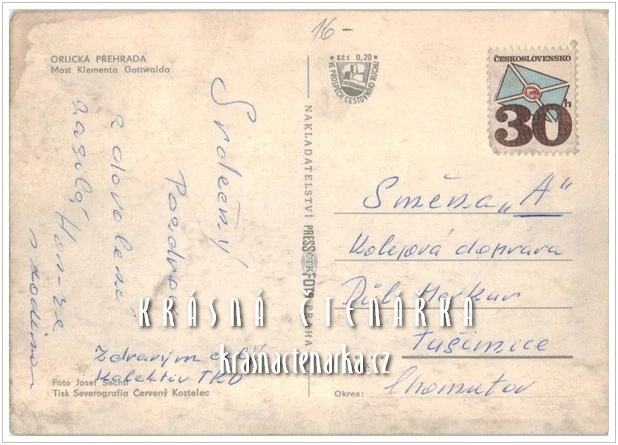 16-
ORLICKÁ PŘEHRADA
Most Klementa Gottwalda
Kčs 0,20
VE PROSPĚCH CESTOVNÍHO RUCHU
ČESKOSLOVENSKO
30h
Srdečný
Pozdrav
z dovolené
zasílá Honza
s rodinou
Zdravím celý
Kolektiv TKD
NAKLADATELSTVÍ PRESSFOTO PRAHA
ČTK
Směna „A"
Kolejová doprava
Důl Merkur
Tušimice
Okres: Chomutov
KRÁSNÁ ČTENÁŘKA
krasnactenarka.cz
Foto Josef Sechtl
Tisk Severografia Červený Kostelec